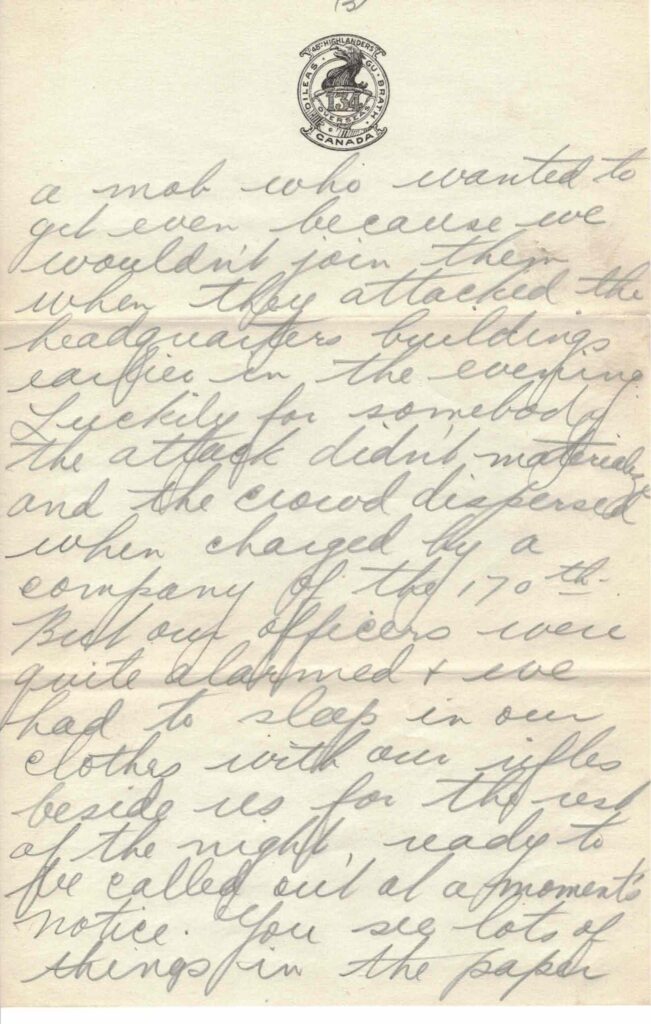 3
48TH HIGHLANDERS
DILEAS GU BRATH
134
OVERSEAS
CANADA
a mob who wanted to
get even because we
wouldn't join them
when they attacked the
headquarters buildings
earlier in the evening
Luckily for somebody
the attack didn't materialize
and the crowd dispersed
when charged by a
company of the 170th.
But our officers were
quite alarmed & we
had to sleep in our
clothes with our rifles
beside us for the rest
of the night, ready to
be called out at a moment's
notice. You see lots of
things in the paper